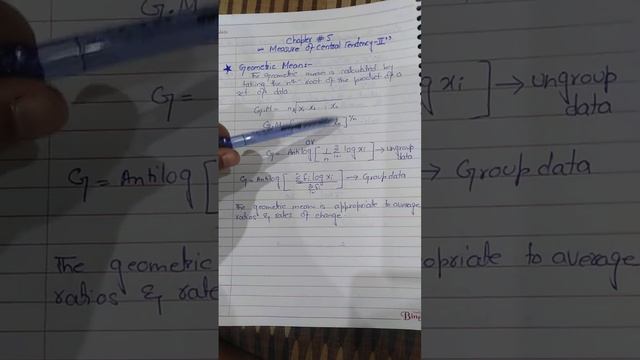 Chapter # 5
"Measure of Central Tendency-II"
★ Geometric Mean:-
The geometric mean is calculated by
taking the nth root of the product of a
set of data
G.M =
G.M
]^1/n
or
G = Antilog [ 1/n Σ log xi ] → ungroup
data
G = Antilog [ Σ fi log xi / Σ fi ] → Group data
The geometric mean is appropriate to average
ratios & rates of change
G.M
G =
G = Antilog [
The geometric
ratios & rate
g xi ] → ungroup
data
→ Group data
opriate to average